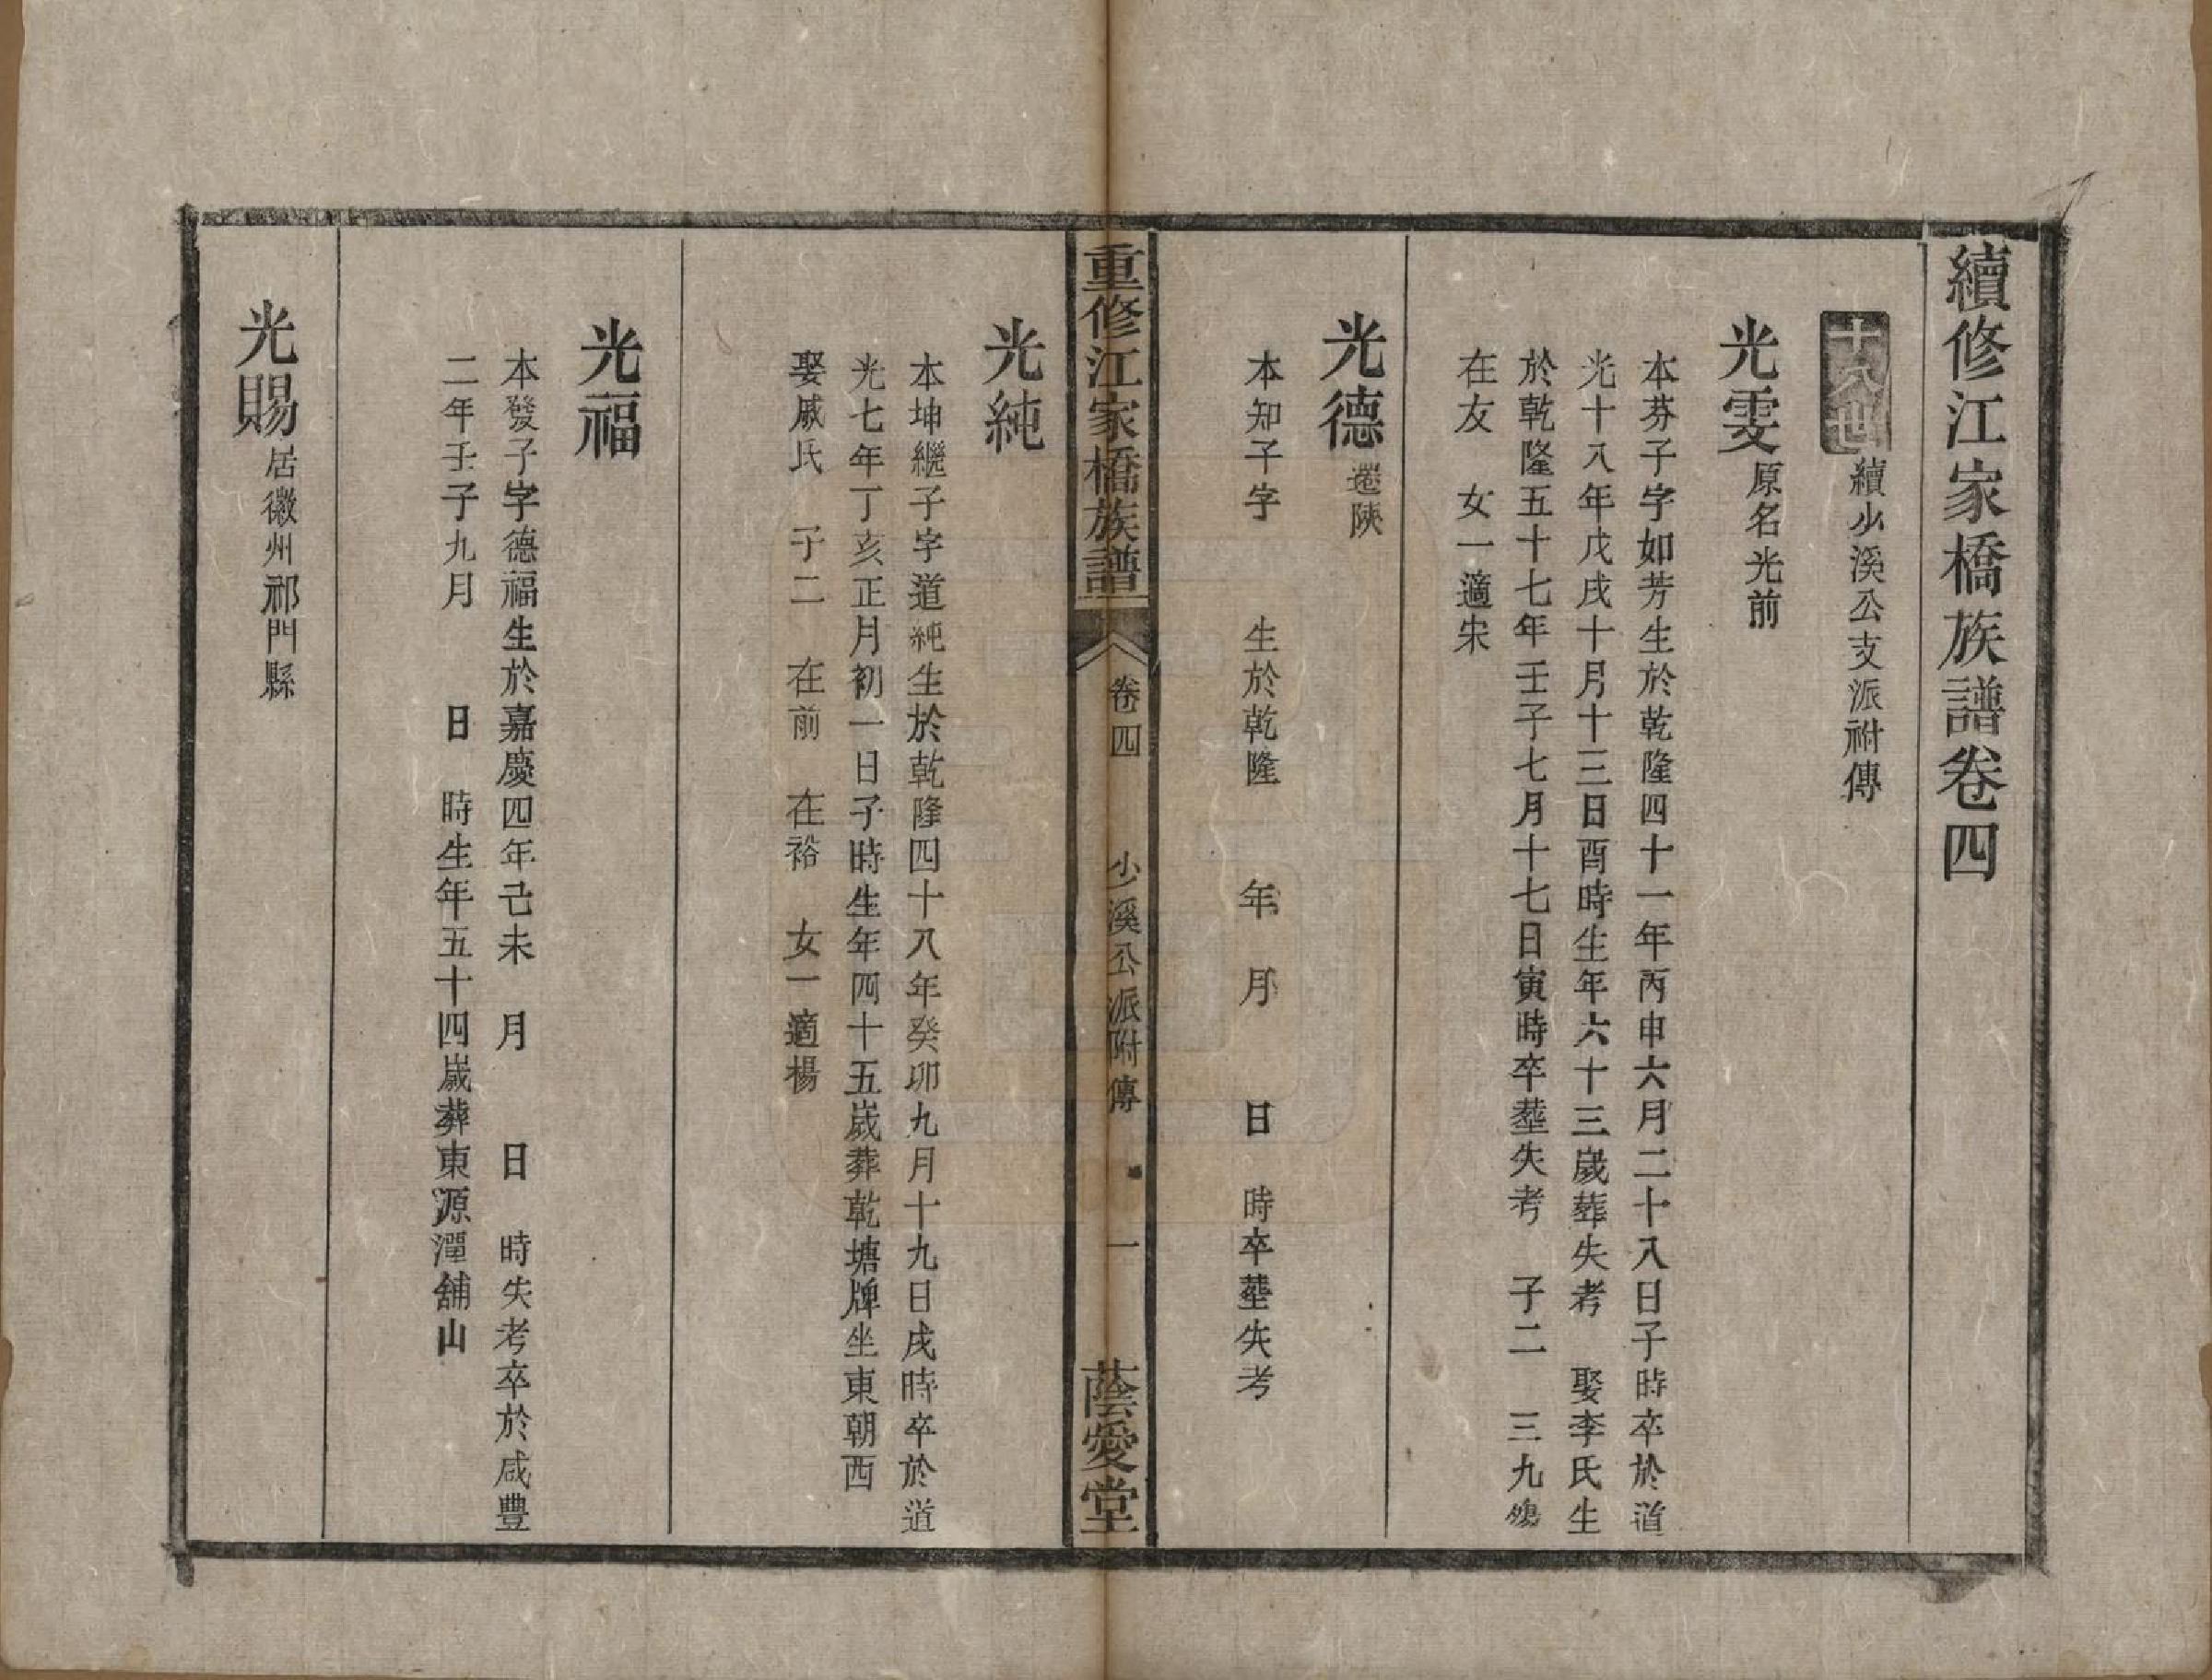 續修江家橋族譜卷四
十八世 續少溪公支派附傳
光雯 原名光前
本芬子字如芳生於乾隆四十一年丙申六月二十八日子時卒於道
光十八年戊戌十月十三日酉時生年六十三歲葬失考 娶李氏生
於乾隆五十七年壬子七月十七日寅時卒塟失考 子二 三九殤
在友 女一適宋
光德 遷陝
本知子字 生於乾隆 年 月 日 時卒塟失考
重修江家橋族譜 卷四 少溪公派附傳 一 蔭愛堂
光純
本坤繼子字道純生於乾隆四十八年癸卯九月十九日戌時卒於道
光七年丁亥正月初一日子時生年四十五歲葬乾塘牌坐東朝西
娶戚氏 子二 在前 在裕 女一適楊
光福
本發子字德福生於嘉慶四年己未 月 日 時失考卒於咸豐
二年壬子九月 日 時生年五十四歲葬東源潭舖山
光賜 居徽州祁門縣